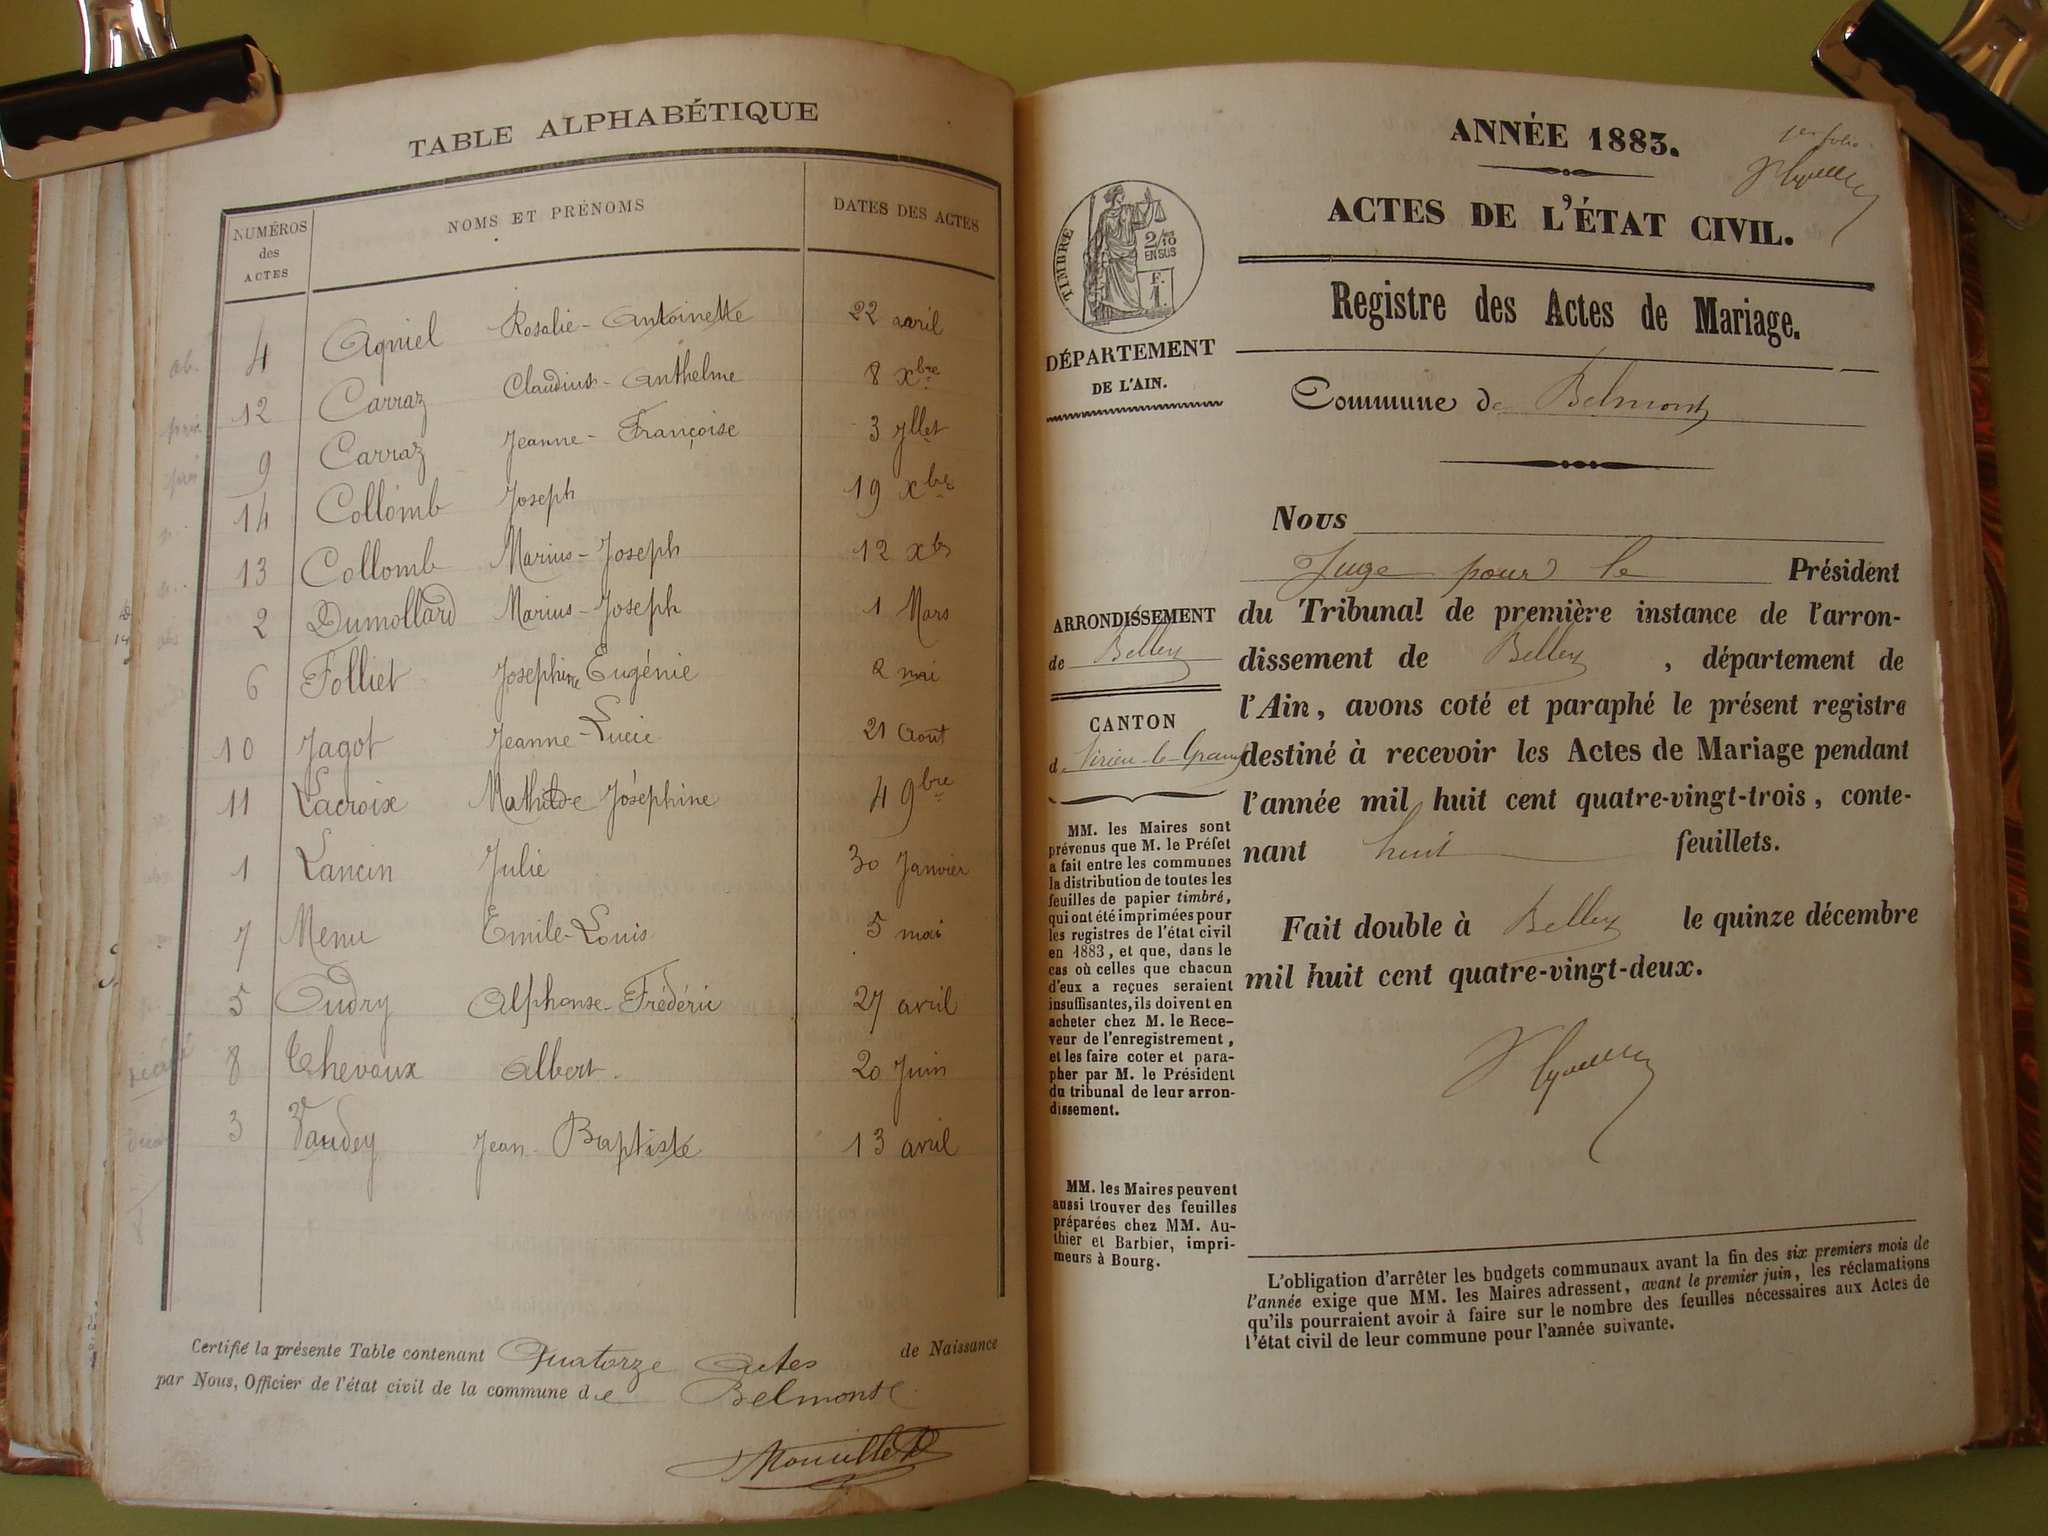 TABLE ALPHABÉTIQUE
NUMÉROS des ACTES
NOMS ET PRÉNOMS
DATES DES ACTES
4 Agniel Rosalie-Antoinette 22 avril
12 Carraz Claudius-Anthelme 8 Xbre
9 Carraz Jeanne-Françoise 3 Jllet
14 Collomb Joseph 19 Xbre
13 Collomb Marius-Joseph 12 Xbre
2 Dumollard Marius-Joseph 1 Mars
6 Folliet Joséphine Eugénie 2 mai
10 Jagot Jeanne-Lucie 21 Août
11 Lacroix Mathilde Joséphine 4 9bre
1 Lancin Julie 30 Janvier
7 Menu Emile-Louis 5 mai
5 Oudry Alphonse-Frédéric 27 avril
8 Thevoux Albert. 20 Juin
3 Vaudey Jean-Baptiste 13 avril
Certifié la présente Table contenant Quatorze actes de Naissance
par Nous, Officier de l'état civil de la commune de Belmont
ANNÉE 1883.
1er folio
ACTES DE L'ÉTAT CIVIL.
TIMBRE
2/10
EN SUS
F.
1.
Registre des Actes de Mariage.
DÉPARTEMENT
DE L'AIN.
Commune de Belmont
Nous
Juge pour le Président
du Tribunal de première instance de l'arron-
dissement de Belley, département de
l'Ain, avons coté et paraphé le présent registre
destiné à recevoir les Actes de Mariage pendant
l'année mil huit cent quatre-vingt-trois, conte-
nant huit feuillets.
Fait double à Belley le quinze décembre
mil huit cent quatre-vingt-deux.
ARRONDISSEMENT
de Belley
CANTON
d Virieu-le-Grand
MM. les Maires sont
prévenus que M. le Préfet
a fait entre les communes
la distribution de toutes les
feuilles de papier timbré,
qui ont été imprimées pour
les registres de l'état civil
en 1883, et que, dans le
cas où celles que chacun
d'eux a reçues seraient
insuffisantes, ils doivent en
acheter chez M. le Rece-
veur de l'enregistrement,
et les faire coter et para-
pher par M. le Président
du tribunal de leur arron-
dissement.
MM. les Maires peuvent
aussi trouver des feuilles
préparées chez MM. Au-
thier et Barbier, impri-
meurs à Bourg.
L'obligation d'arrêter les budgets communaux avant la fin des six premiers mois de
l'année exige que MM. les Maires adressent, avant le premier juin, les réclamations
qu'ils pourraient avoir à faire sur le nombre des feuilles nécessaires aux Actes de
l'état civil de leur commune pour l'année suivante.